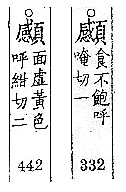 ○顑
食不飽呼
唵切一
332
○顑
面虛黃色
呼紺切二
442